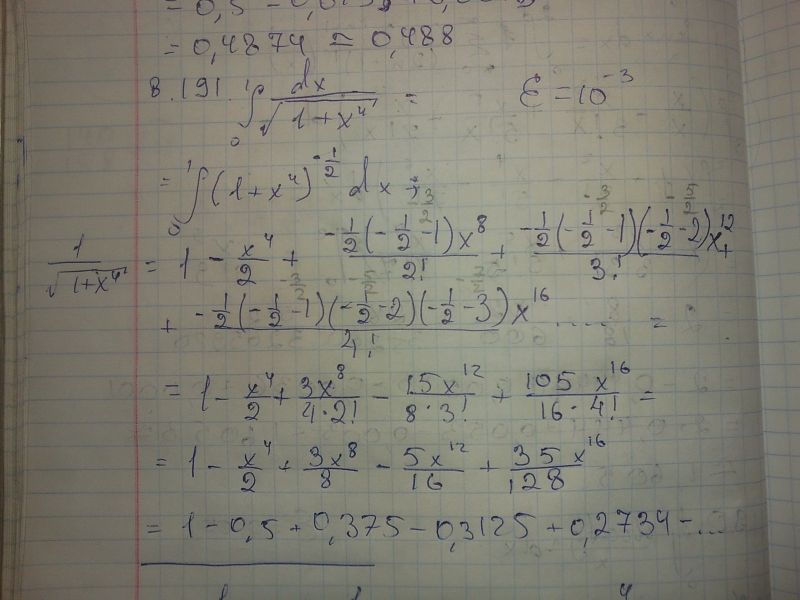 = 0,4874 ≈ 0,488
8.191. ∫₀¹ dx/√(1+x⁴) = ε = 10⁻³
= ∫₀¹ (1+x⁴)^(-1/2) dx =
1/√(1+x⁴) = 1 - x⁴/2 + (-1/2(-1/2-1)x⁸)/2! + (-1/2(-1/2-1)(-1/2-2)x¹²)/3! +
+ (-1/2(-1/2-1)(-1/2-2)(-1/2-3)x¹⁶)/4! ..... =
= 1 - x⁴/2 + 3x⁸/(4·2!) - 15x¹²/(8·3!) + 105x¹⁶/(16·4!) =
= 1 - x⁴/2 + 3x⁸/8 - 5x¹²/16 + 35x¹⁶/128
= 1 - 0,5 + 0,375 - 0,3125 + 0,2734 - ...